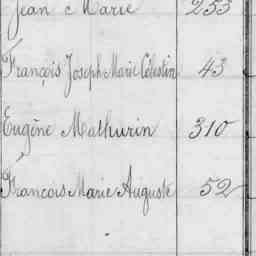 Jean Marie 253
François Joseph Marie Célestin 43
Eugène Mathurin 310
François Marie Auguste 52